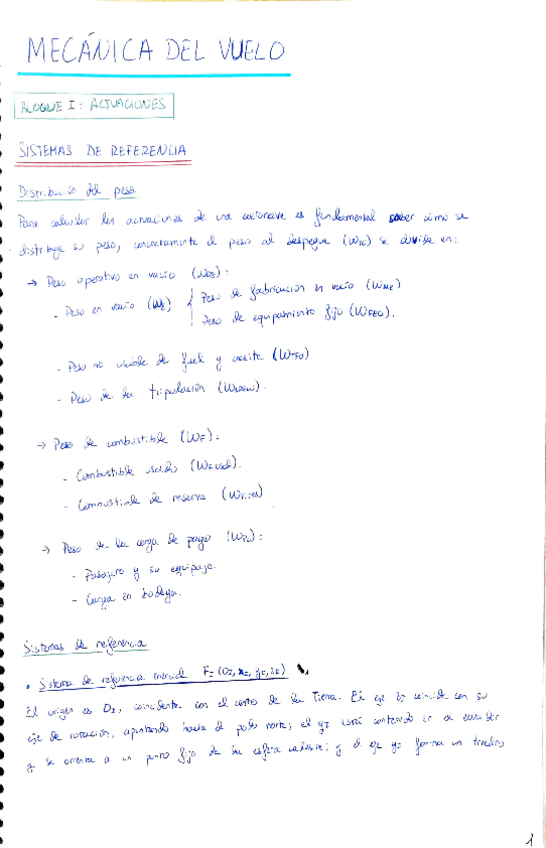 MECÁNICA DEL VUELO
BLOQUE I: ACTUACIONES
SISTEMAS DE REFERENCIA
Distribución del peso
Para calcular las actuaciones de una aeronave es fundamental saber cómo se
distribuye su peso, concretamente el peso al despegue (WTO) se divide en:
→ Peso operativo en vacío (WOE):
- Peso en vacío (WE) { Peso de fabricación en vacío (WME)
Peso de equipamiento fijo (WFEQ).
- Peso no usable de fuel y aceite (WTFO)
- Peso de la tripulación
→ Peso de combustible (WF):
- Combustible usado (WFused).
- Combustible de reserva
→ Peso de la carga de pago (WPL):
- Pasajero y su equipaje.
- Carga en bodega.
Sistemas de referencia
• Sistema de referencia inercial FI (OI, xI, yI, zI)
El origen es OI, coincidente con el centro de la Tierra. El eje zI coincide con su
eje de rotación, apuntando hacia el polo norte; el xI está contenido en el ecuador
y se orienta a un punto fijo de la esfera celeste; y el eje yI forma un triedro
1